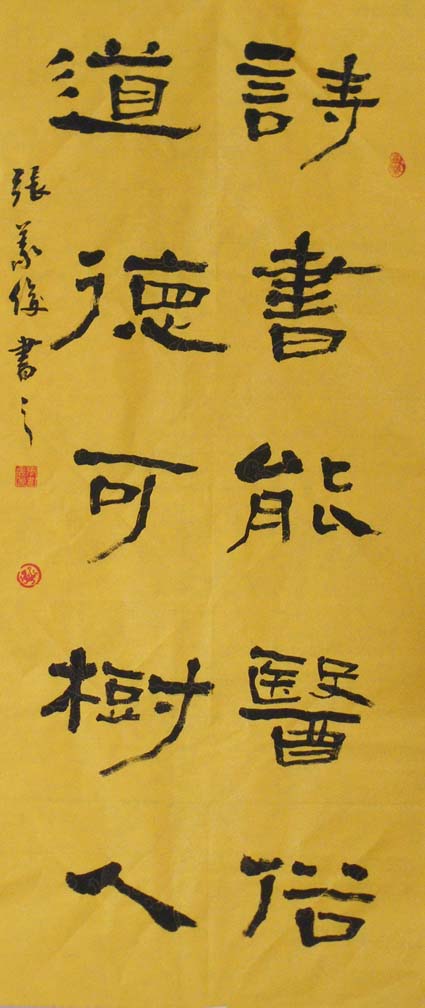 詩書能醫俗
道德可樹人
張義俊書之